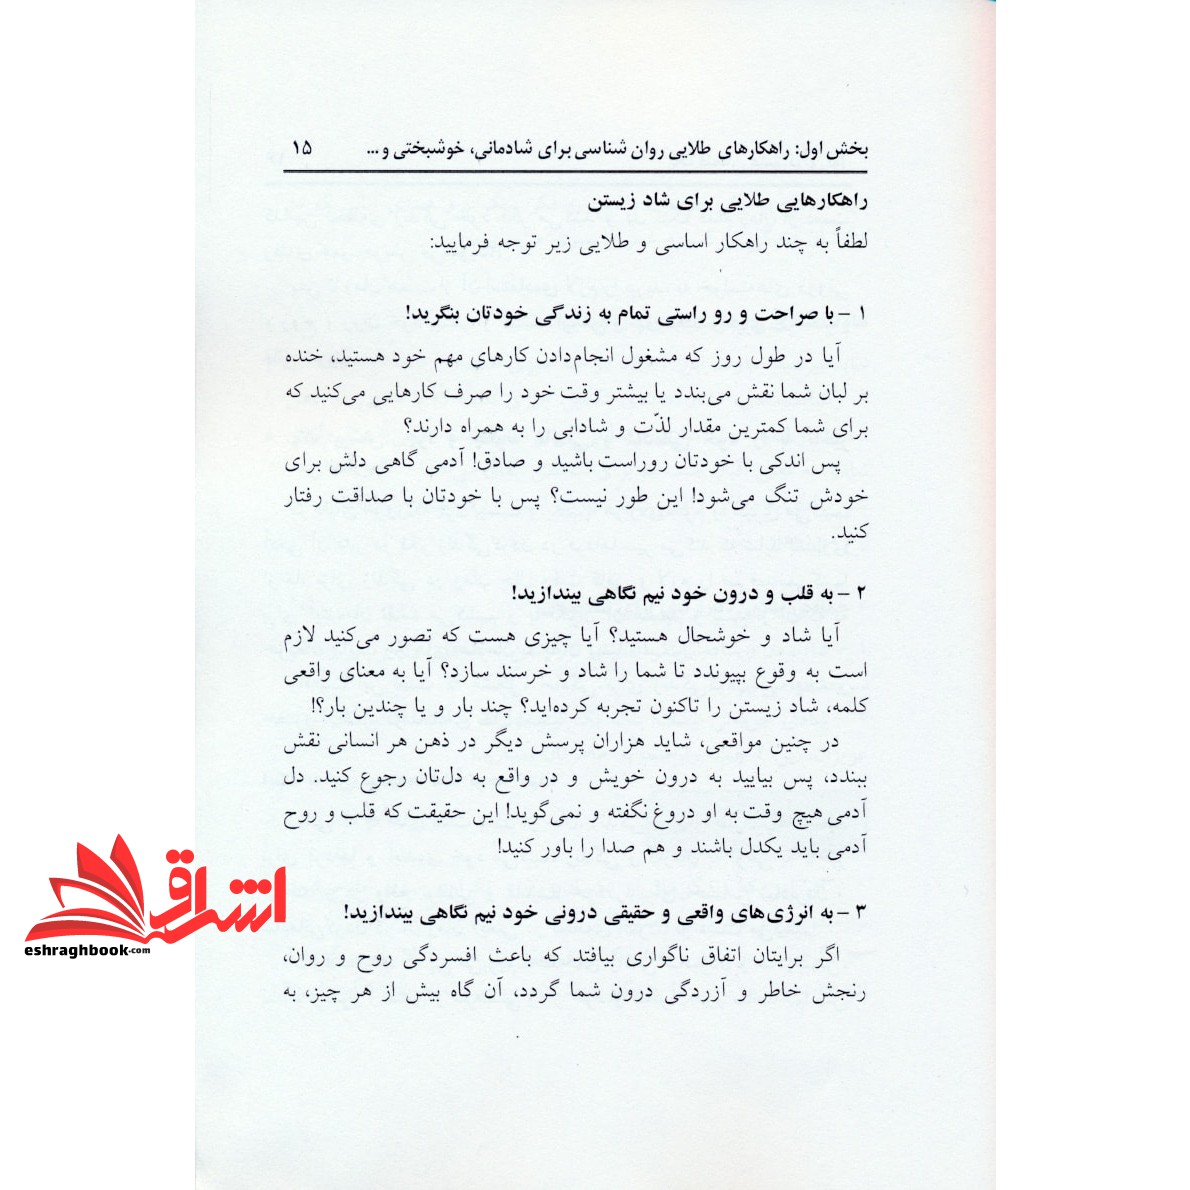 بخش اول: راهکارهای طلایی روان شناسی برای شادمانی، خوشبختی و ... ۱۵
راهکارهایی طلایی برای شاد زیستن
لطفاً به چند راهکار اساسی و طلایی زیر توجه فرمایید:
۱ – با صراحت و رو راستی تمام به زندگی خودتان بنگرید!
آیا در طول روز که مشغول انجام‌دادن کارهای مهم خود هستید، خنده
بر لبان شما نقش می‌بندد یا بیشتر وقت خود را صرف کارهایی می‌کنید که
برای شما کمترین مقدار لذّت و شادابی را به همراه دارند؟
پس اندکی با خودتان روراست باشید و صادق! آدمی گاهی دلش برای
خودش تنگ می‌شود! این طور نیست؟ پس با خودتان با صداقت رفتار
کنید.
۲ – به قلب و درون خود نیم نگاهی بیندازید!
آیا شاد و خوشحال هستید؟ آیا چیزی هست که تصور می‌کنید لازم
است به وقوع بپیوندد تا شما را شاد و خرسند سازد؟ آیا به معنای واقعی
کلمه، شاد زیستن را تاکنون تجربه کرده‌اید؟ چند بار و یا چندین بار؟!
در چنین مواقعی، شاید هزاران پرسش دیگر در ذهن هر انسانی نقش
ببندد، پس بیایید به درون خویش و در واقع به دل‌تان رجوع کنید. دل
آدمی هیچ وقت به او دروغ نگفته و نمی‌گوید! این حقیقت که قلب و روح
آدمی باید یکدل باشند و هم صدا را باور کنید!
۳ – به انرژی‌های واقعی و حقیقی درونی خود نیم نگاهی بیندازید!
اگر برایتان اتفاق ناگواری بیافتد که باعث افسردگی روح و روان،
رنجش خاطر و آزردگی درون شما گردد، آن گاه بیش از هر چیز، به
اشراق
eshraghbook.com